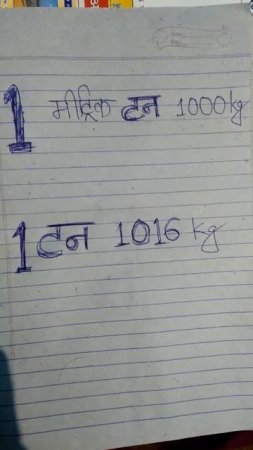 1 मीट्रिक टन 1000kg
1 टन 1016 kg